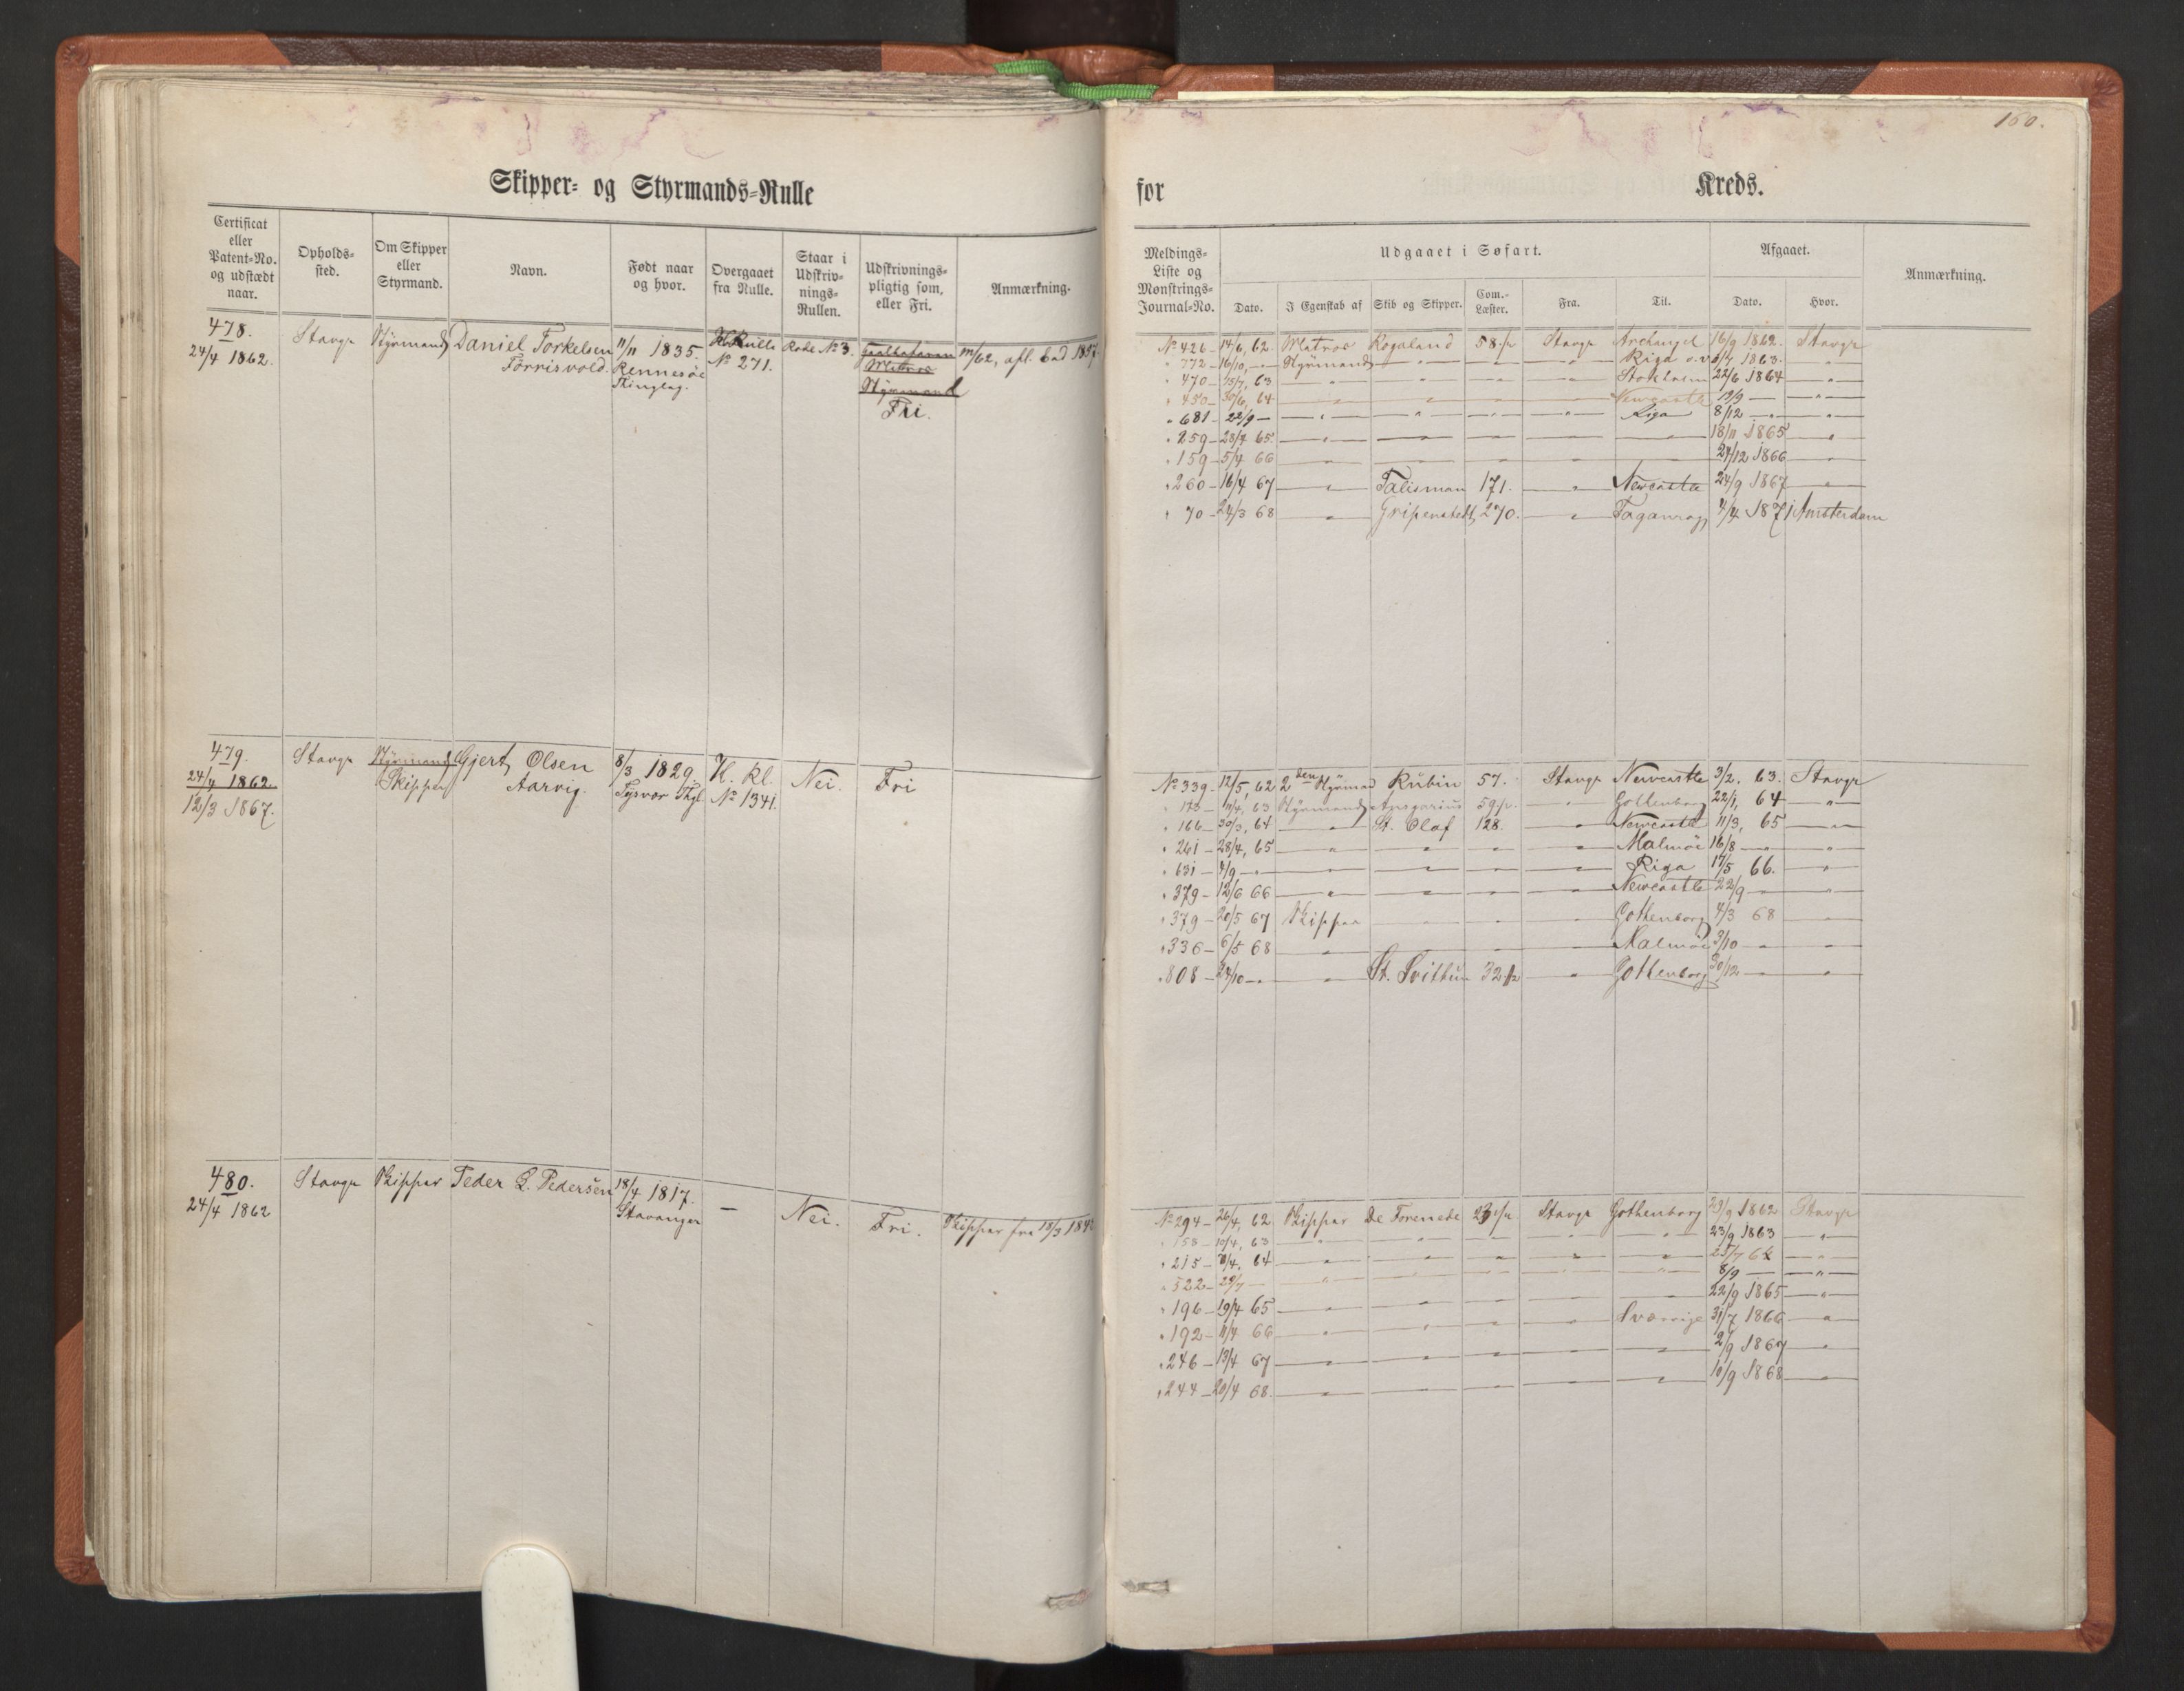 160.
Skipper- og Styrmands-Rulle for Kreds.
Certificat eller Patent-No. og udstædt naar. Opholds-sted. Om Skipper eller Styrmand. Navn. Født naar og hvor. Overgaaet fra Rulle. Staar i Udskriv-nings-Rullen. Udskrivnings-pligtig som, eller Fri. Anmærkning.
Meldings-Liste og Mønstrings-Journal-No. Udgaaet i Søfart. Afgaaet. Anmærkning.
Dato. I Egenskab af Skib og Skipper. Com.-Læster. Fra. Til. Dato. Hvor.
478. Stavgr Styrmand Daniel Torkelsen 11/11 1835. H. Rulle Rode No 3.
24/4 1862. Torrisvold. Rennesöe No 271. Matros
Thinglag. Styrmand
Fri.
No 426 - 14/6, 62. Matros Rogaland 58 1/2 Stavgr Archangel 16/9 1862. Stavgr
" 772 - 16/10, - " - Styrmand - " - - " - - " - Riga 1863. - " -
" 470 - 15/7, 63 - " - - " - - " - - " - Stokholm 22/6 1864 - " -
" 450 - 30/6, 64 - " - - " - - " - - " - Newcastle 12/9 - - " -
" 681 - 22/9 - - " - - " - - " - - " - Riga 8/12 - " - - " -
" 259 - 28/4 65. - " - 18/11 1865 - " -
" 159 - 5/4 66 - " - 24/12 1866 - " -
" 260 - 16/4 67 - " - Talisman 171. - " - Newcastle 24/9 1867 - " -
" 70 - 24/3 68 - " - Gripenstedt 270. - " - Taganrog 4/4 1871 Amsterdam
479. Stavgr Styrmand Gjert Olsen 8/3 1829. H. kl. Nei. Fri
24/4 1862. Skipper Aarvig. Tysvær Thgl. No 1341.
12/3 1867.
No 339 - 12/5, 62 2den Styrmand Rubin 57. Stavgr Newcastle 3/2. 63. Stavgr
" 173 - 11/4, 63 Styrmand Ansgarius 59 1/2. - " - Gottenborg 22/1, 64 - " -
" 166 - 30/3, 64 - " - St. Olaf 128. - " - Newcastle 11/3, 65 - " -
" 261 - 28/4, 65 - " - - " - - " - - " - Malmöe 16/8 - " - - " -
" 631 - 4/9 - " - - " - - " - - " - Riga 17/5 66. - " -
" 379 - 12/6 66 - " - - " - - " - - " - Newcastle 22/9 - - " -
" 379 - 20/5 67 Skipper - " - - " - - " - Gothenborg 4/3 68 - " -
" 336 - 6/5 68 - " - - " - Malmöe 3/10 - " - - " -
" 808 - 24/10 - " - - " - St. Svithun 32 1/2 - " - Gothenborg 30/12 - " - - " -
480. Stavgr Skipper Peder L. Pedersen 18/4 1817. - Nei. Fri.
24/4 1862 Stavanger
No 294 - 26/4, 62 Skipper De Forenede Stavgr Gothenborg 23/9 1862 Stavgr
" 158 - 10/4, 63 - " - - " - - " - - " - - " - 23/9 1863 - " -
" 215 - 64 - " - - " - - " - - " - - " - 64 - " -
" 522 - - " - - " - - " - - " - - " - 8/9 - - " -
" 196 - 19/4 65 - " - - " - - " - - " - 22/9 1865 - " -
" 192 - 11/4 66 - " - - " - - " - - " - Sverrige 31/7 1866 - " -
" 246 - 13/4 67 - " - - " - - " - - " - - " - 2/9 1867 - " -
" 244 - 20/4 68. - " - - " - - " - - " - - " - 10/9 1868 - " -